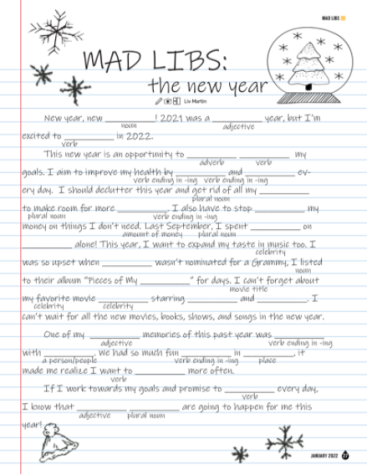 MAD LIBS
MAD LIBS:
the new year
Liv Martin
New year, new ________! 2021 was a ________ year, but I'm
noun adjective
excited to ________ in 2022.
verb
This new year is an opportunity to ________ ________ my
adverb verb
goals. I aim to improve my health by ________ and ________ ev-
verb ending in -ing verb ending in -ing
ery day. I should declutter this year and get rid of all my ________
plural noun
to make room for more ________. I also have to stop ________ my
plural noun verb ending in -ing
money on things I don't need. Last September, I spent ________ on
amount of money plural noun
________ alone! This year, I want to expand my taste in music too. I
celebrity
was so upset when ________ wasn't nominated for a Grammy, I listed
noun
to their album "Pieces of My ________" for days. I can't forget about
movie title
my favorite movie ________ starring ________ and ________. I
celebrity celebrity
can't wait for all the new movies, books, shows, and songs in the new year.
One of my ________ memories of this past year was ________
adjective verb ending in -ing
with ________. We had so much fun ________ in ________, it
a person/people verb ending in -ing place
made me realize I want to ________ more often.
verb
If I work towards my goals and promise to ________ every day,
verb
I know that ________ ________ are going to happen for me this
adjective plural noun
year!
JANUARY 2022